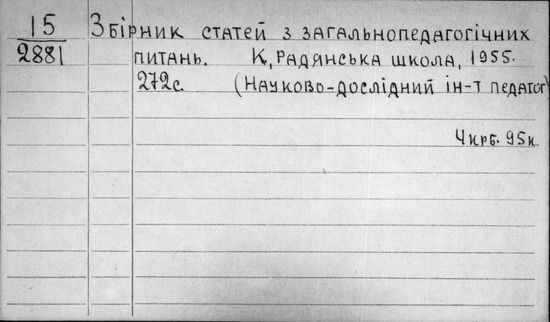 15
2881
Збірник статей з загальнопедагогічних
питань. К, Радянська школа, 1955.
272с. (Науково-дослідний ін-т педагог)
4 крб. 95к.